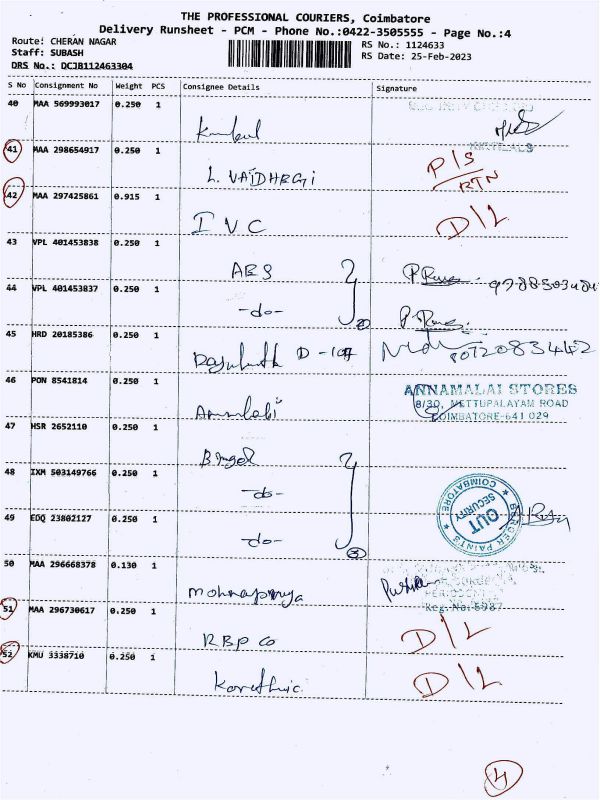 THE PROFESSIONAL COURIERS, Coimbatore
Delivery Runsheet - PCM - Phone No.:0422-3505555 - Page No.:4
Route: CHERAN NAGAR RS No.: 1124633
Staff: SUBASH RS Date: 25-Feb-2023
DRS No.: DCJB112463304
S No Consignment No Weight PCS Consignee Details Signature
40 MAA 569993017 0.250 1
41 MAA 298654917 0.250 1 L. VAIDHEGI P/S RTN
42 MAA 297425861 0.915 1 I V C D/L
43 VPL 401453838 0.250 1 ABS
44 VPL 401453837 0.250 1 -do-
45 HRD 20185386 0.250 1
46 PON 8541814 0.250 1 ANNAMALAI STORES
8/30, METTUPALAYAM ROAD
COIMBATORE-641 029
47 HSR 2652110 0.250 1
48 IXM 503149766 0.250 1 -do-
BERGER PAINTS COIMBATORE
OUT
SECURITY
49 EDQ 23802127 0.250 1 -do-
50 MAA 296668378 0.130 1
Reg. No. 6987
51 MAA 296730617 0.250 1 RBP Co D/L
52 KMU 3338710 0.250 1 D/L
4